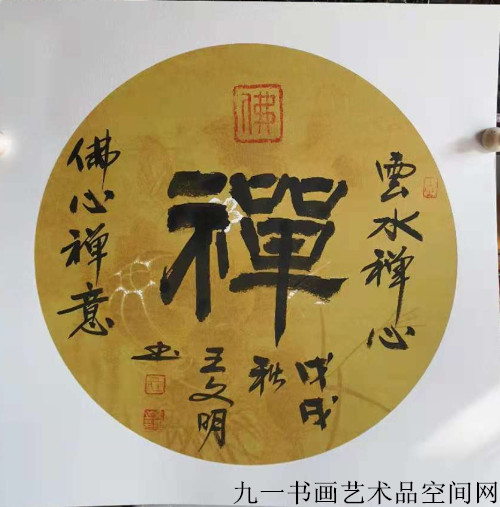 佛
禪
雲水禅心
佛心禅意
戊戌
秋
王文明
书
九一书画艺术品空间网